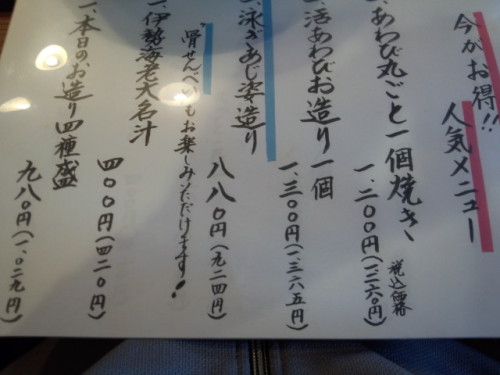 今がお得!!
人気メニュー
一、あわび丸ごと一個焼き
一、二〇〇円(一、二六〇円)
税込価格
一、活あわびお造り一個
一、三〇〇円(一、三六五円)
一、泳ぎあじ姿造り
八八〇円(九二四円)
骨せんべいもお楽しみいただけます!
一、伊勢海老大名汁
四〇〇円(四二〇円)
一、本日のお造り四種盛
九八〇円(一、〇二九円)